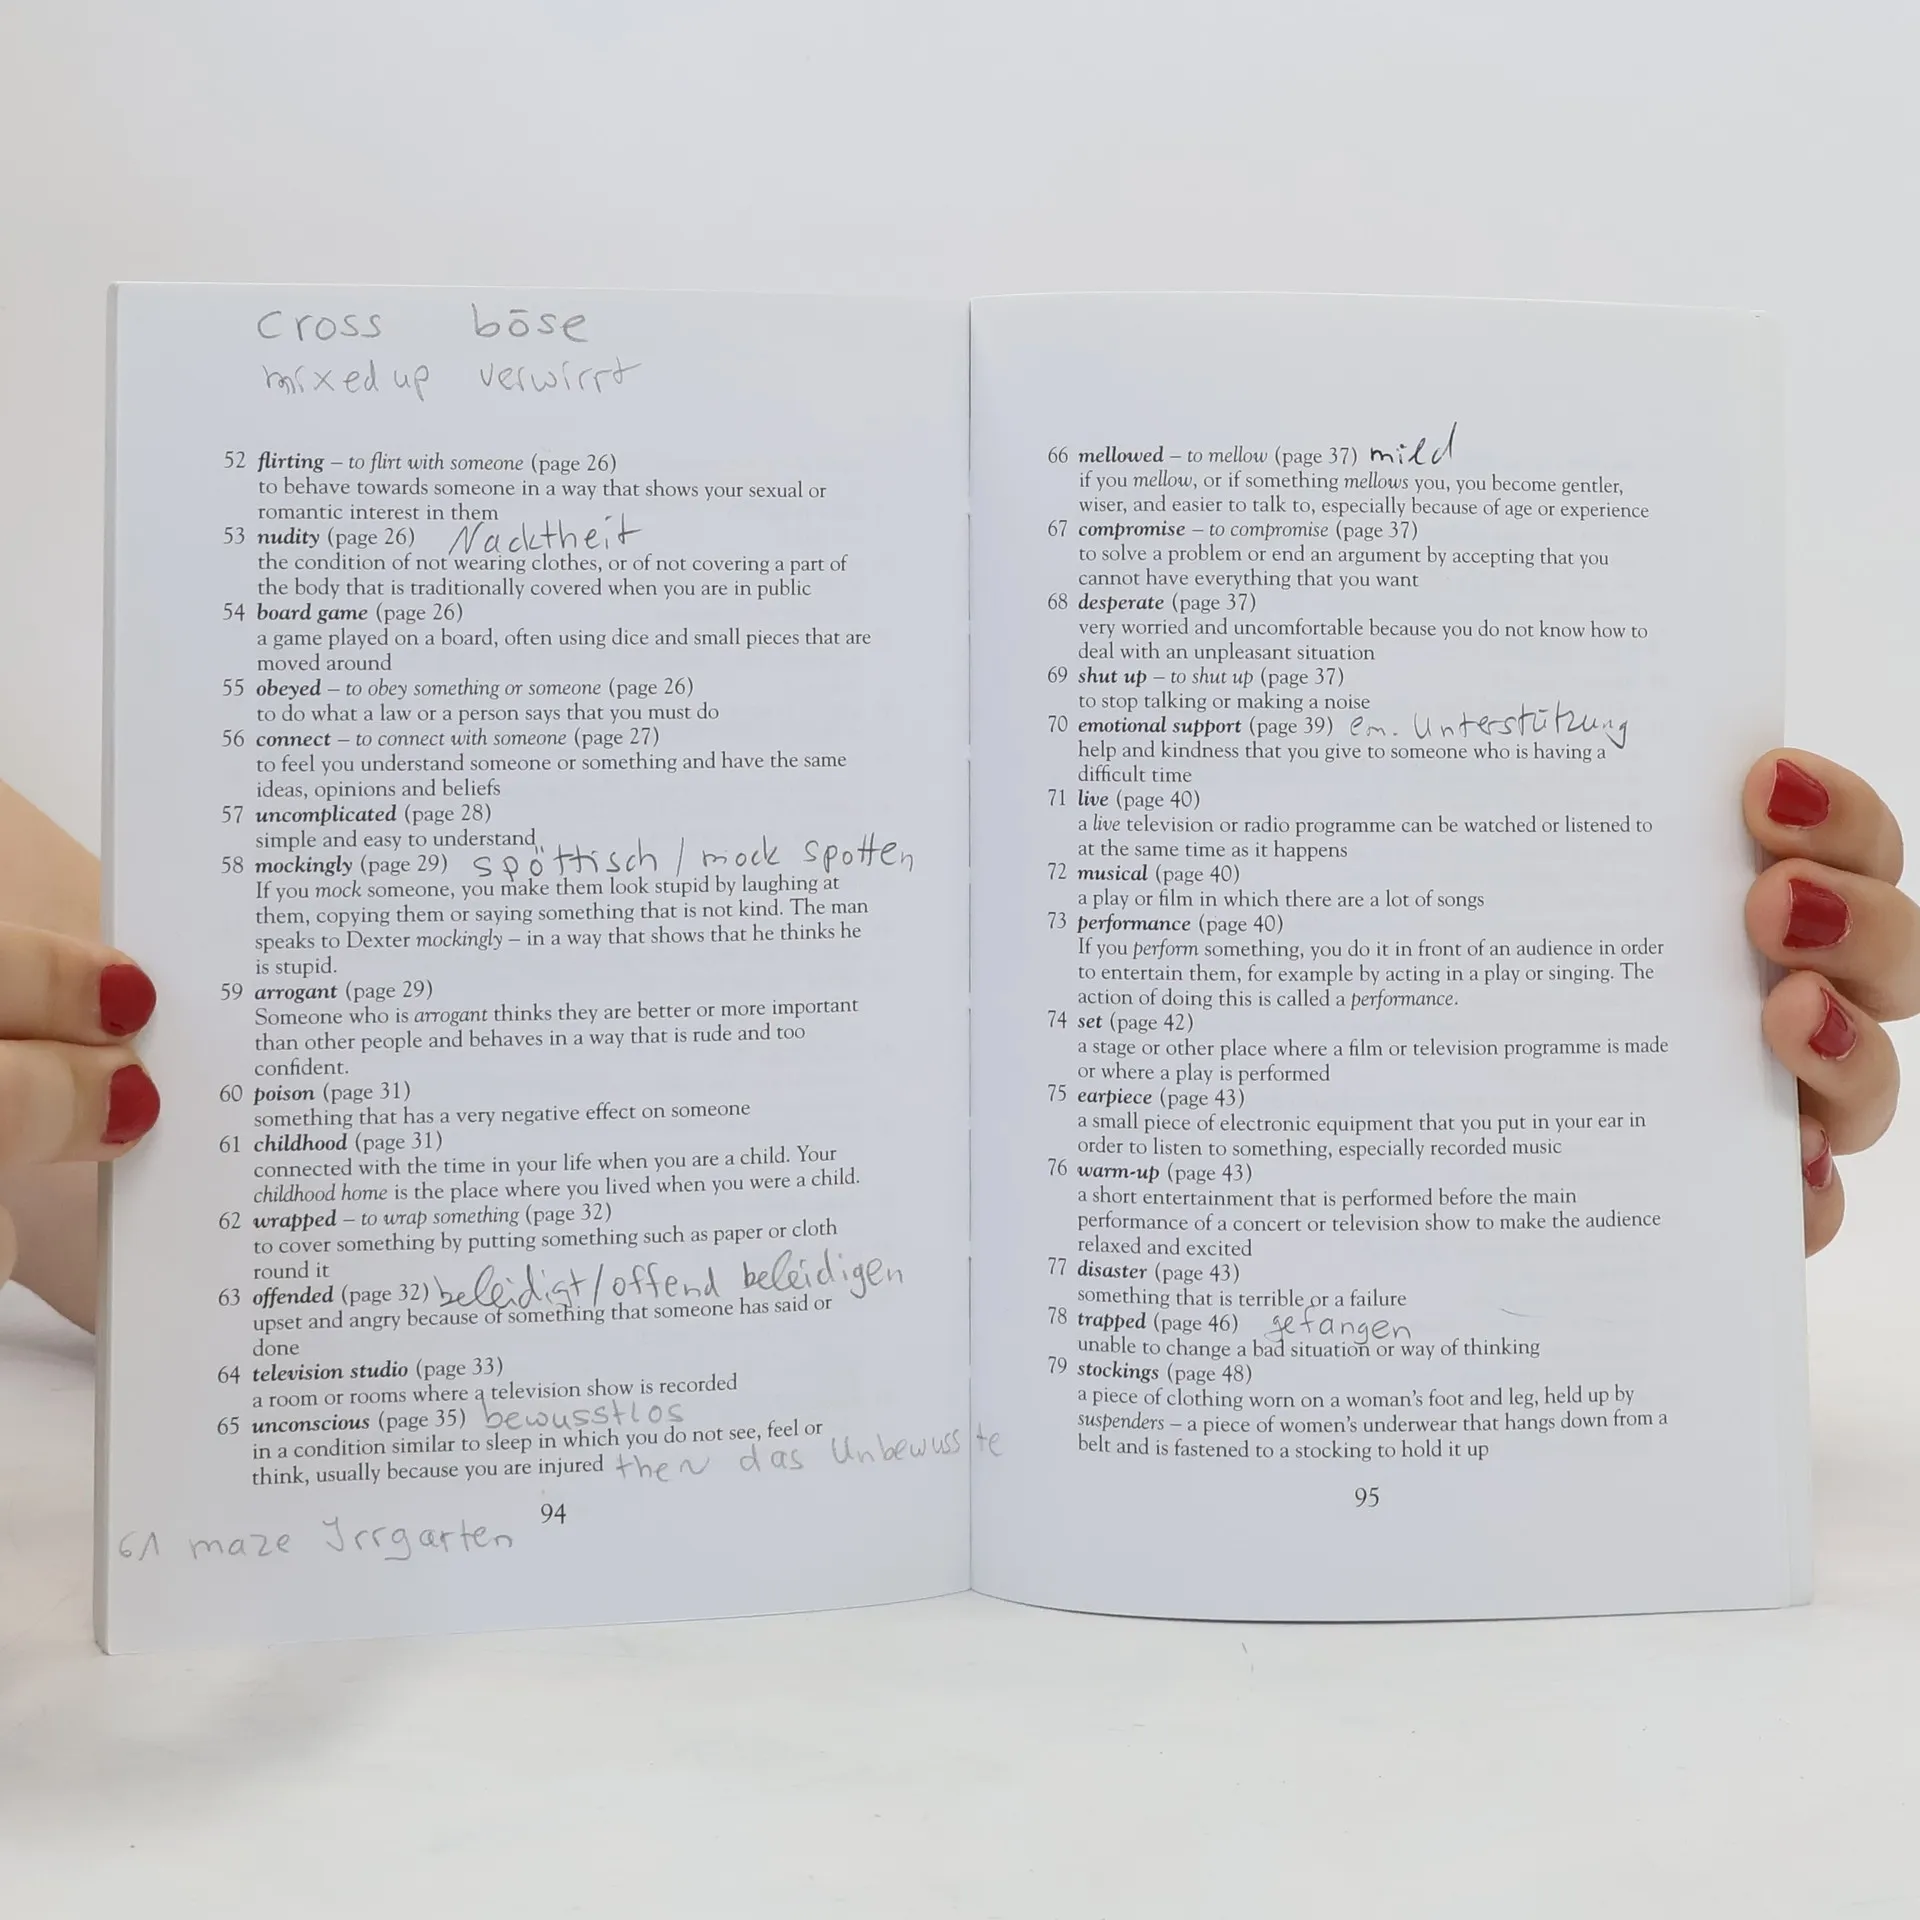 cross böse
mixed up verwirrt
52 flirting – to flirt with someone (page 26)
to behave towards someone in a way that shows your sexual or
romantic interest in them
53 nudity (page 26) Nacktheit
the condition of not wearing clothes, or of not covering a part of
the body that is traditionally covered when you are in public
54 board game (page 26)
a game played on a board, often using dice and small pieces that are
moved around
55 obeyed – to obey something or someone (page 26)
to do what a law or a person says that you must do
56 connect – to connect with someone (page 27)
to feel you understand someone or something and have the same
ideas, opinions and beliefs
57 uncomplicated (page 28)
simple and easy to understand
58 mockingly (page 29) spöttisch / mock spotten
If you mock someone, you make them look stupid by laughing at
them, copying them or saying something that is not kind. The man
speaks to Dexter mockingly – in a way that shows that he thinks he
is stupid.
59 arrogant (page 29)
Someone who is arrogant thinks they are better or more important
than other people and behaves in a way that is rude and too
confident.
60 poison (page 31)
something that has a very negative effect on someone
61 childhood (page 31)
connected with the time in your life when you are a child. Your
childhood home is the place where you lived when you were a child.
62 wrapped – to wrap something (page 32)
to cover something by putting something such as paper or cloth
round it
63 offended (page 32) beleidigt / offend beleidigen
upset and angry because of something that someone has said or
done
64 television studio (page 33)
a room or rooms where a television show is recorded
65 unconscious (page 35) bewusstlos
in a condition similar to sleep in which you do not see, feel or
think, usually because you are injured das Unbewusste
94
61 maze Irrgarten
66 mellowed – to mellow (page 37) mild
if you mellow, or if something mellows you, you become gentler,
wiser, and easier to talk to, especially because of age or experience
67 compromise – to compromise (page 37)
to solve a problem or end an argument by accepting that you
cannot have everything that you want
68 desperate (page 37)
very worried and uncomfortable because you do not know how to
deal with an unpleasant situation
69 shut up – to shut up (page 37)
to stop talking or making a noise
70 emotional support (page 39) em. Unterstützung
help and kindness that you give to someone who is having a
difficult time
71 live (page 40)
a live television or radio programme can be watched or listened to
at the same time as it happens
72 musical (page 40)
a play or film in which there are a lot of songs
73 performance (page 40)
If you perform something, you do it in front of an audience in order
to entertain them, for example by acting in a play or singing. The
action of doing this is called a performance.
74 set (page 42)
a stage or other place where a film or television programme is made
or where a play is performed
75 earpiece (page 43)
a small piece of electronic equipment that you put in your ear in
order to listen to something, especially recorded music
76 warm-up (page 43)
a short entertainment that is performed before the main
performance of a concert or television show to make the audience
relaxed and excited
77 disaster (page 43)
something that is terrible or a failure
78 trapped (page 46) gefangen
unable to change a bad situation or way of thinking
79 stockings (page 48)
a piece of clothing worn on a woman's foot and leg, held up by
suspenders – a piece of women's underwear that hangs down from a
belt and is fastened to a stocking to hold it up
95